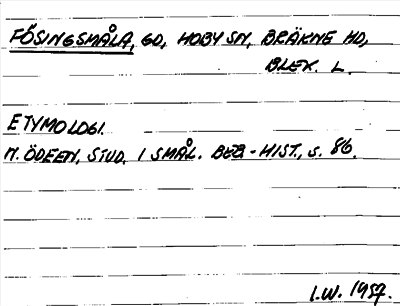 FÖSINGSMÅLA, GD, HOBY SN, BRÄKNE HD,
BLEK. L.
ETYMOLOGI.
N. ÖDEEN, STUD. I SMÅL. BEB-HIST., S. 86.
I.W. 1957.